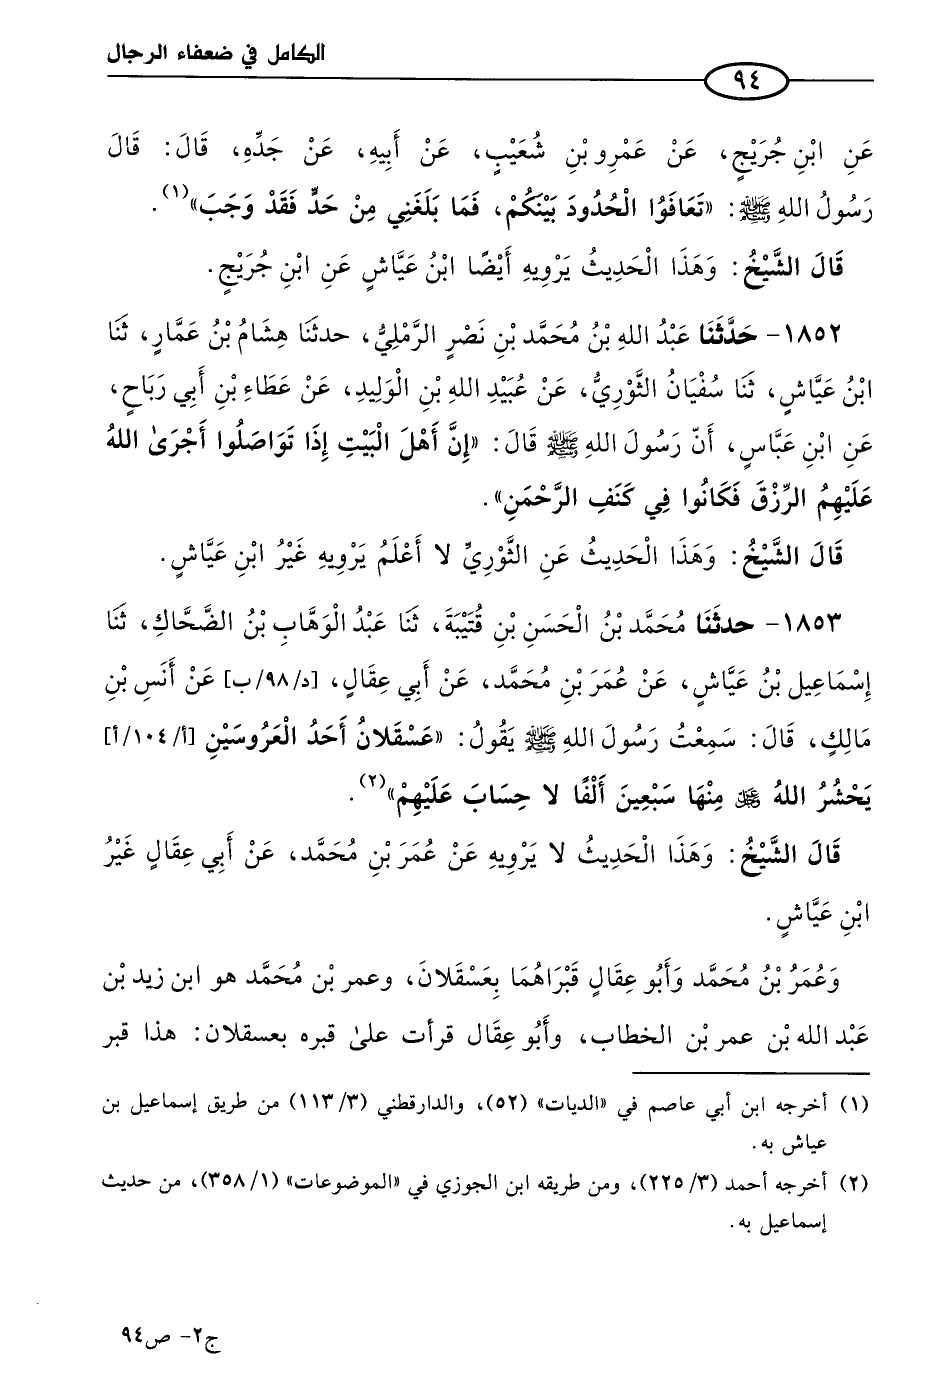 الكامل في ضعفاء الرجال
٩٤
عَنِ ابْنِ جُرَيْجٍ، عَنْ عَمْرِو بْنِ شُعَيْبٍ، عَنْ أَبِيهِ، عَنْ جَدِّهِ، قَالَ: قَالَ
رَسُولُ اللهِ ﷺ: «تَعَافَوُا الْحُدُودَ بَيْنَكُمْ، فَمَا بَلَغَنِي مِنْ حَدٍّ فَقَدْ وَجَبَ»(١).
قَالَ الشَّيْخُ: وَهَذَا الْحَدِيثُ يَرْوِيهِ أَيْضًا ابْنُ عَيَّاشٍ عَنِ ابْنِ جُرَيْجٍ.
١٨٥٢- حَدَّثَنَا عَبْدُ اللهِ بْنُ مُحَمَّد بْنِ نَصْرٍ الرَّمْلِيُّ، حدثَنَا هِشَامُ بْنُ عَمَّارٍ، ثَنَا
ابْنُ عَيَّاشٍ، ثَنَا سُفْيَانُ الثَّوْرِيُّ، عَنْ عُبَيْدِ اللهِ بْنِ الْوَلِيدِ، عَنْ عَطَاءِ بْنِ أَبِي رَبَاحٍ،
عَنِ ابْنِ عَبَّاسٍ، أَنّ رَسُولَ اللهِ ﷺ قَالَ: «إِنَّ أَهْلَ الْبَيْتِ إِذَا تَوَاصَلُوا أَجْرَىٰ اللهُ
عَلَيْهِمُ الرِّزْقَ فَكَانُوا فِي كَنَفِ الرَّحْمَنِ».
قَالَ الشَّيْخُ: وَهَذَا الْحَدِيثُ عَنِ الثَّوْرِيِّ لا أَعْلَمُ يَرْوِيهِ غَيْرُ ابْنِ عَيَّاشٍ.
١٨٥٣- حدثَنَا مُحَمَّد بْنُ الْحَسَنِ بْنِ قُتَيْبَةَ، ثَنَا عَبْدُ الْوَهَّابِ بْنُ الضَّحَّاكِ، ثَنَا
إِسْمَاعِيل بْنُ عَيَّاشٍ، عَنْ عُمَرَ بْنِ مُحَمَّد، عَنْ أَبِي عِقَالٍ، [د/٩٨/ب] عَنْ أَنَسِ بْنِ
مَالِكٍ، قَالَ: سَمِعْتُ رَسُولَ اللهِ ﷺ يَقُولُ: «عَسْقَلانُ أَحَدُ الْعَرُوسَيْنِ [أ/١٠٤/أ]
يَحْشُرُ اللهُ ﷻ مِنْهَا سَبْعِينَ أَلْفًا لا حِسَابَ عَلَيْهِمْ»(٢).
قَالَ الشَّيْخُ: وَهَذَا الْحَدِيثُ لا يَرْوِيهِ عَنْ عُمَرَ بْنِ مُحَمَّد، عَنْ أَبِي عِقَالٍ غَيْرُ
ابْنِ عَيَّاشٍ.
وَعُمَرُ بْنُ مُحَمَّد وَأَبُو عِقَالٍ قَبْرَاهُمَا بِعَسْقَلانَ، وعمر بْن مُحَمَّد هو ابن زيد بْن
عَبْد الله بْن عمر بْن الخطاب، وأَبُو عِقَال قرأت علىٰ قبره بعسقلان: هذا قبر
(١) أخرجه ابن أبي عاصم في «الديات» (٥٢)، والدارقطني (٣/ ١١٣) من طريق إسماعيل بن
عياش به.
(٢) أخرجه أحمد (٣/ ٢٢٥)، ومن طريقه ابن الجوزي في «الموضوعات» (١/ ٣٥٨)، من حديث
إسماعيل به.
ج٢- ص٩٤